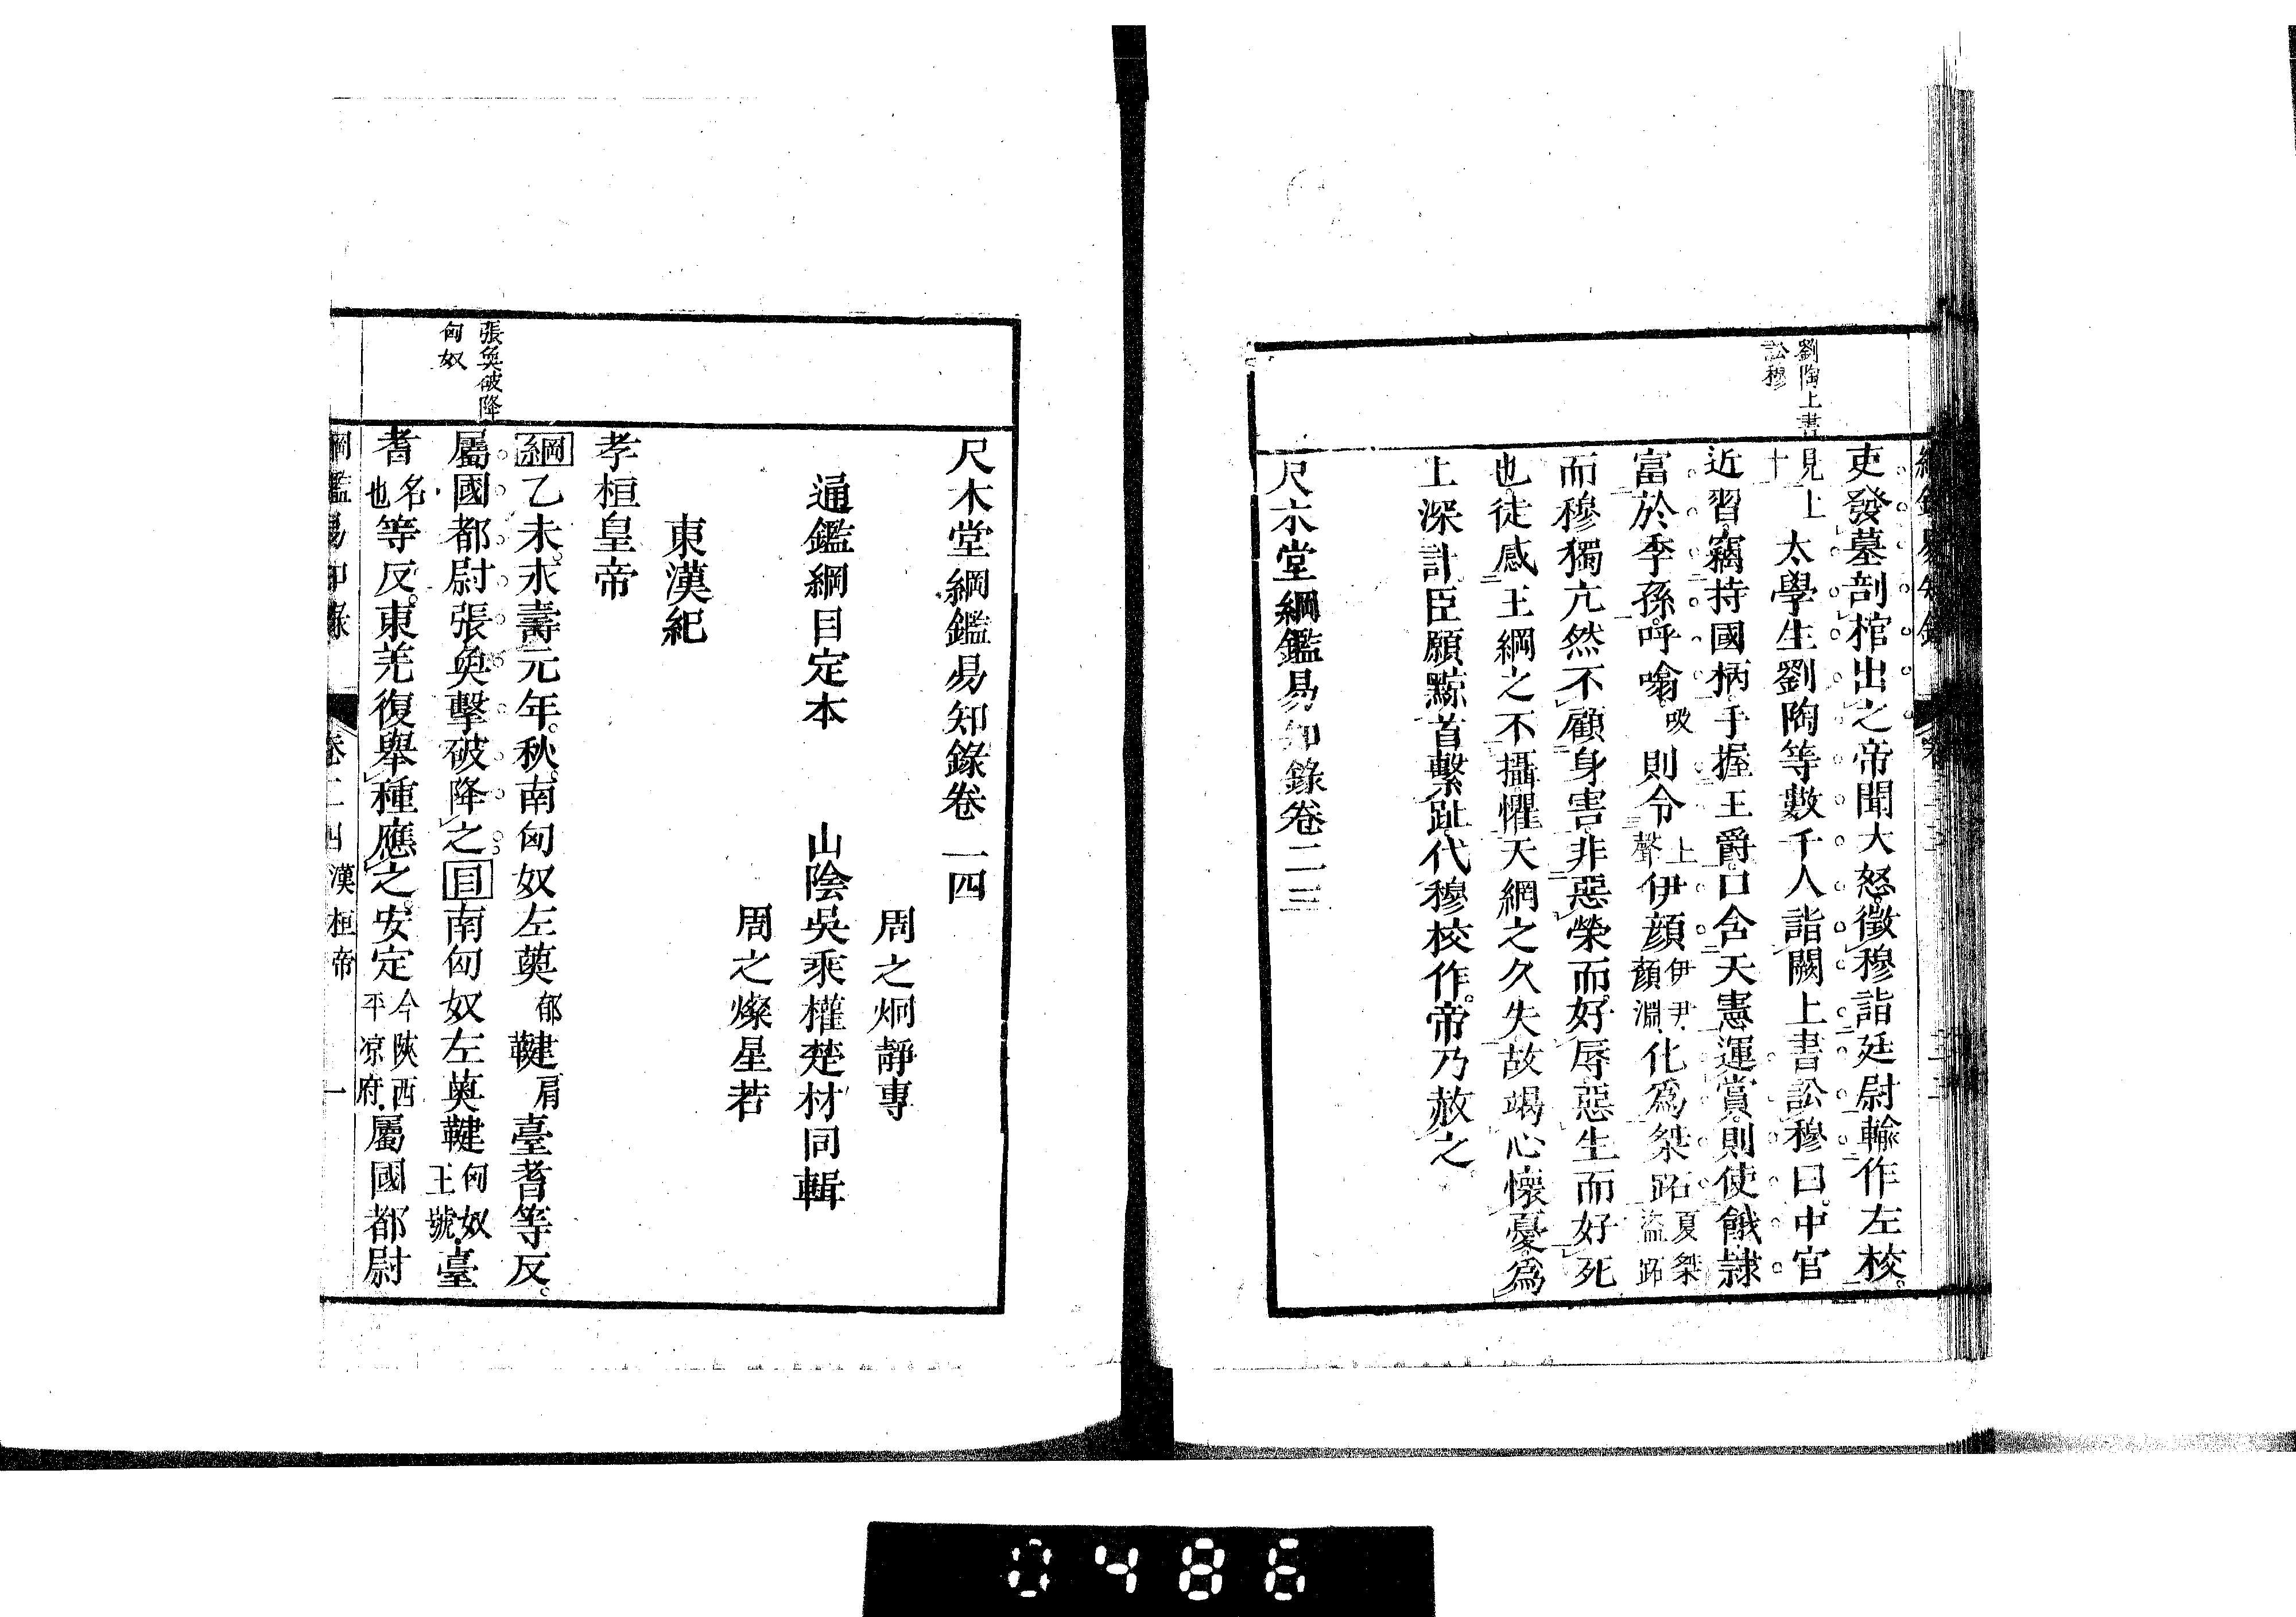 劉陶上書
訟穆
吏發墓剖棺出之帝聞大怒徵穆詣廷尉輸作左校。
見上
十
太學生劉陶等數千人詣闕上書訟穆曰。中官
近習竊持國柄手握王爵口含天憲運賞則使餓隷
富於季孫呼噏吸則令上聲伊顔伊尹顔淵化爲桀跖夏桀盜跖
而穆獨亢然不顧身害非惡榮而好辱惡生而好死
也徒感王綱之不攝懼天網之久失故竭心懷憂爲
上深計臣願黥首繫趾代穆校作。帝乃赦之
尺木堂綱鑑易知錄卷二三
尺木堂綱鑑易知錄卷二四
周之炯靜專
通鑑綱目定本 山陰吳乘權楚材同輯
周之燦星若
東漢紀
孝桓皇帝
張奐破降
匈奴
綱乙未永壽元年。秋南匈奴左薁郁鞬肩臺耆等反。
屬國都尉張奐擊破降之目南匈奴左薁鞬匈奴王號臺
耆名也等反。東羌復舉種應之。安定今陝西平凉府屬國都尉
綱鑑易知錄 卷二四 漢桓帝 一
0486